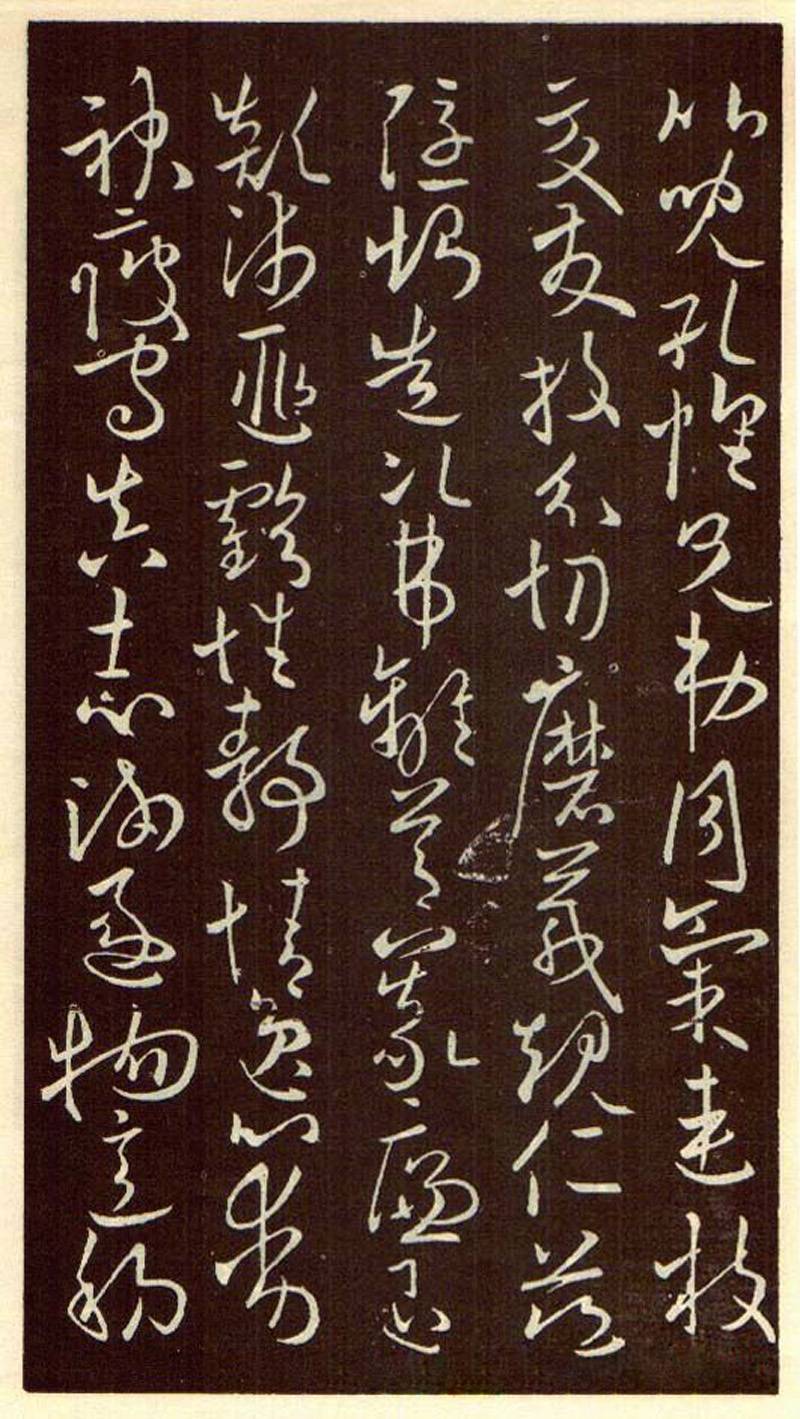 比兒孔懷兄弟同氣連枝
交友投分切磨箴規仁慈
隱惻造次弗離節義廉退
顛沛匪虧性靜情逸心動
神疲守真志滿逐物意移